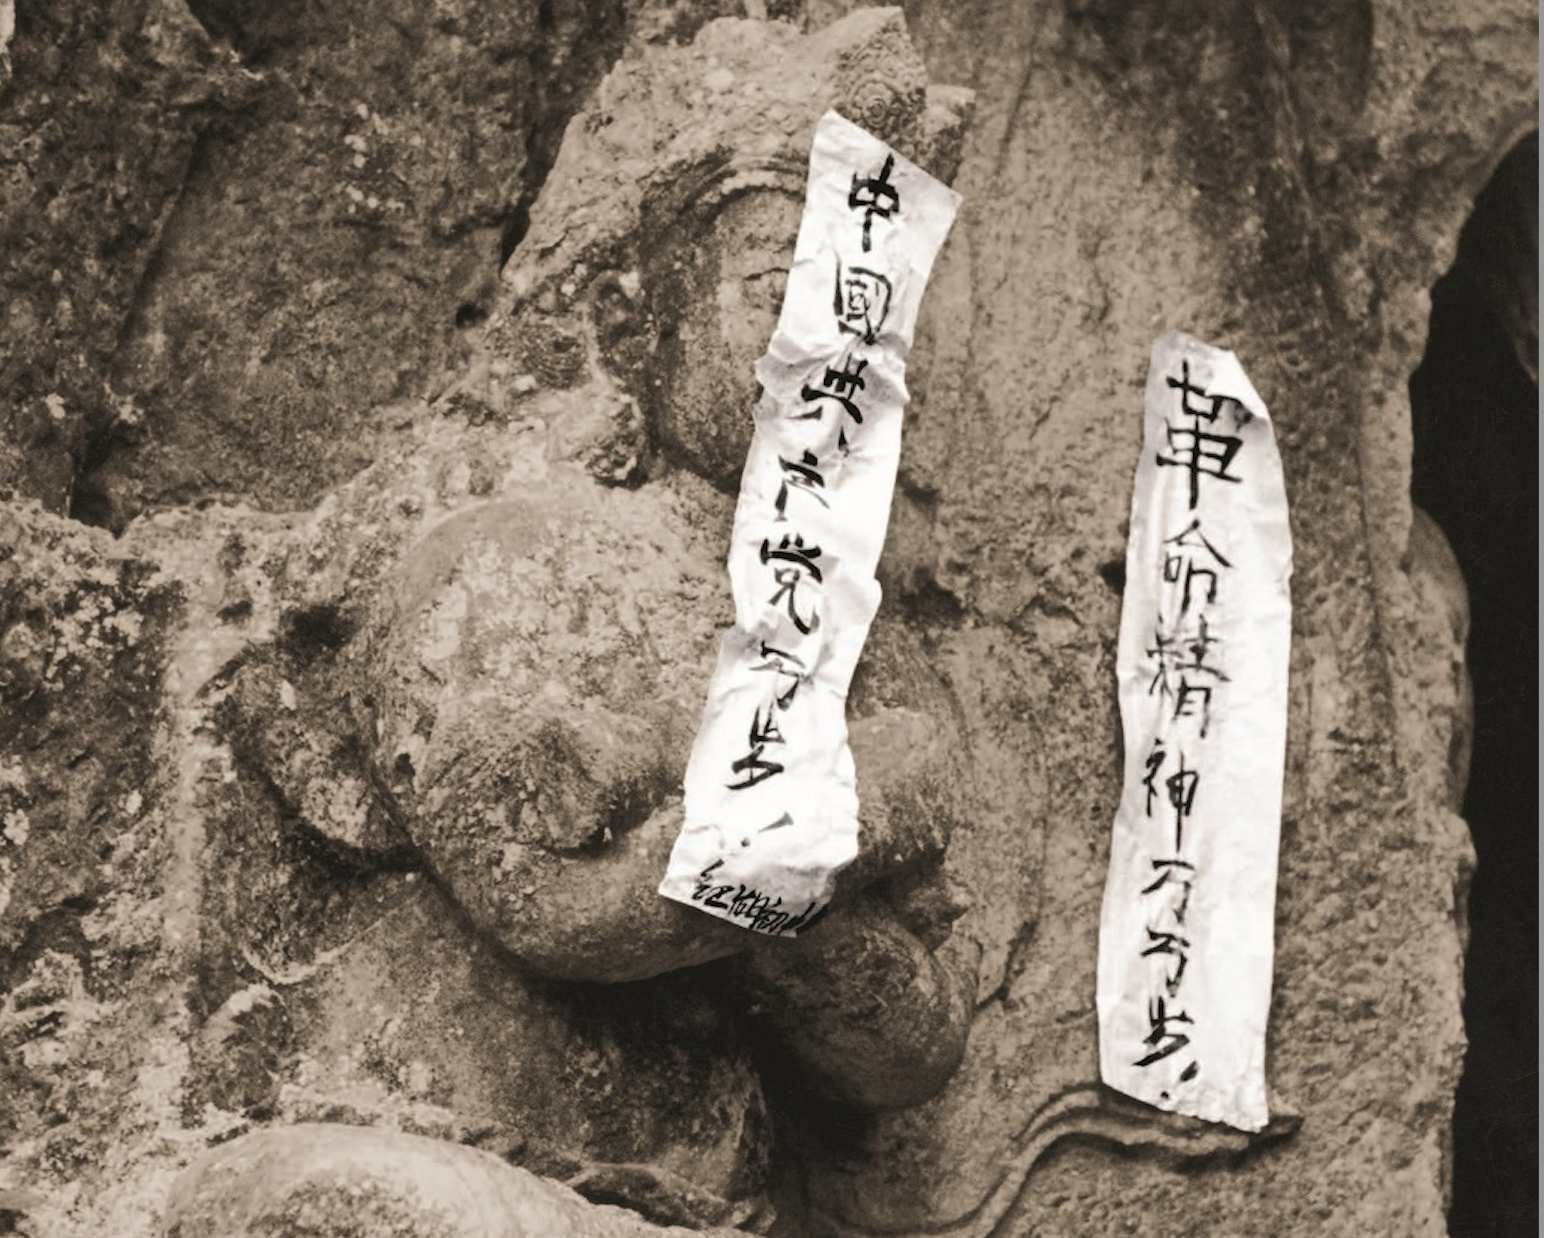 中國共产党万岁!
革命精神万万岁!